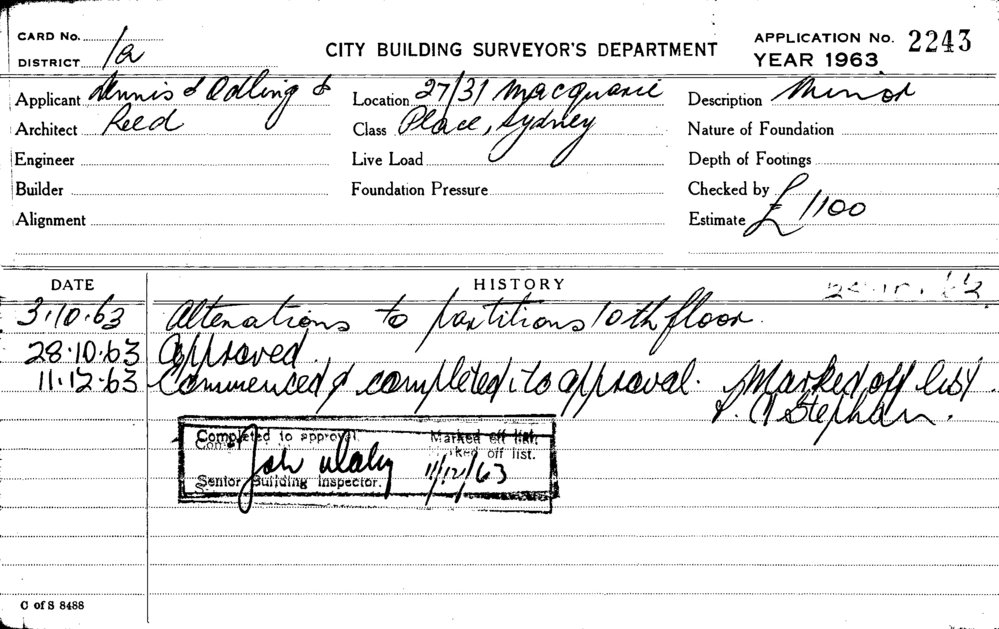 CARD No.
DISTRICT 1a
CITY BUILDING SURVEYOR'S DEPARTMENT
APPLICATION No. 2243
YEAR 1963
Applicant Dennis & Adling &
Architect Reed
Engineer
Builder
Alignment
Location 27/31 Macquarie
Class Place, Sydney
Live Load
Foundation Pressure
Description Minor
Nature of Foundation
Depth of Footings
Checked by
Estimate £1100
DATE HISTORY
3.10.63 Alterations to partitions 10th floor.
28.10.63 Approved.
11.12.63 Commenced & completed to approval. Marked off list.
Stephan.
Completed to approval. Marked off list.
Marked off list.
Senior Building Inspector. 11/12/63
C of S 8488